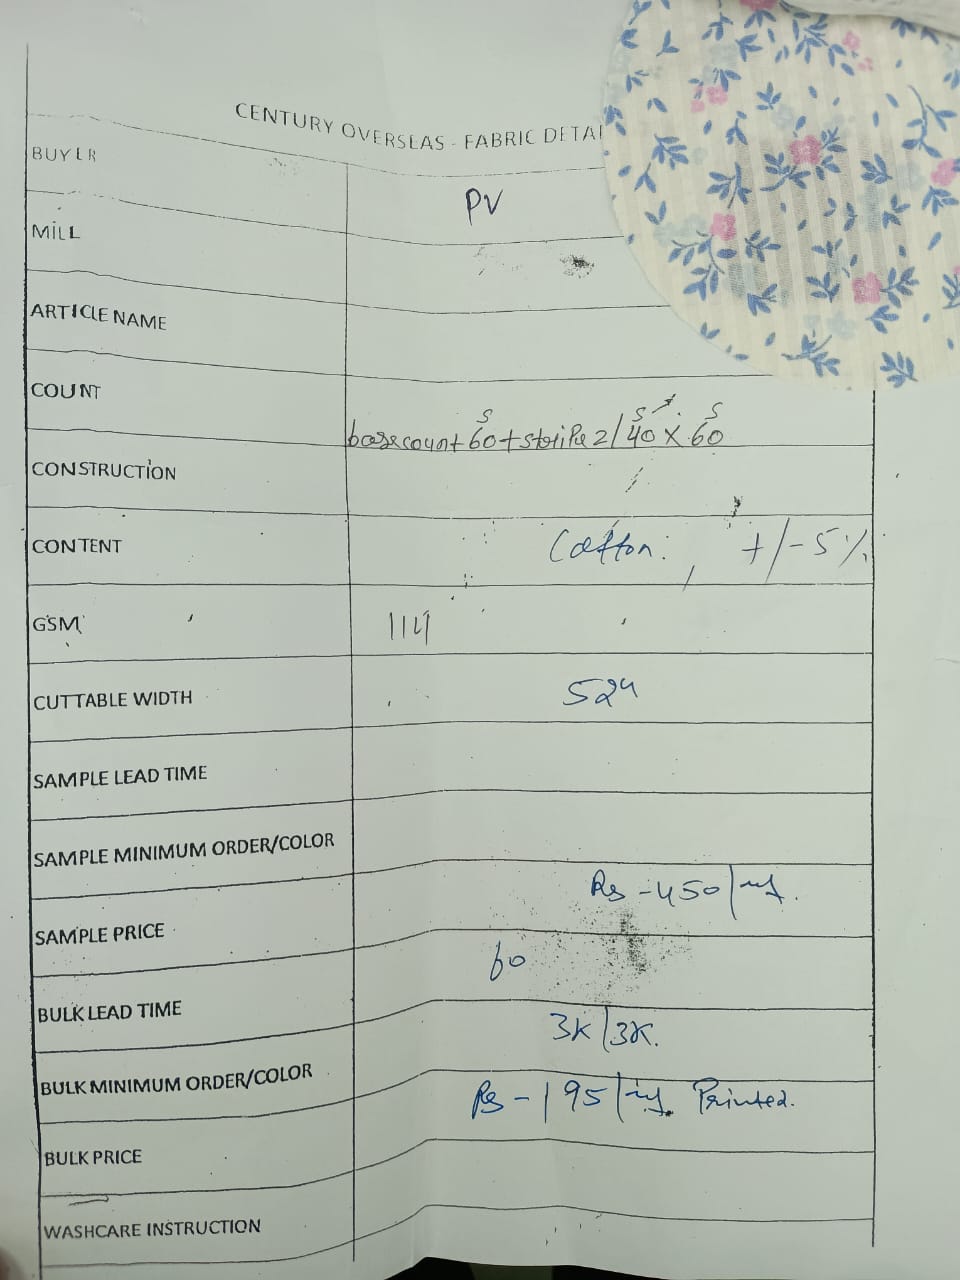 CENTURY OVERSEAS - FABRIC DETAI
BUYER
PV
MILL
ARTICLE NAME
COUNT
base count 60s + stripe 2/40s X 60s
CONSTRUCTION
CONTENT
Cotton: , +/-5%
GSM
114
CUTTABLE WIDTH
52"
SAMPLE LEAD TIME
SAMPLE MINIMUM ORDER/COLOR
SAMPLE PRICE
Rs -450/mt.
BULK LEAD TIME
60
BULK MINIMUM ORDER/COLOR
3K/3K.
BULK PRICE
Rs - 195/mt. Printed.
WASHCARE INSTRUCTION